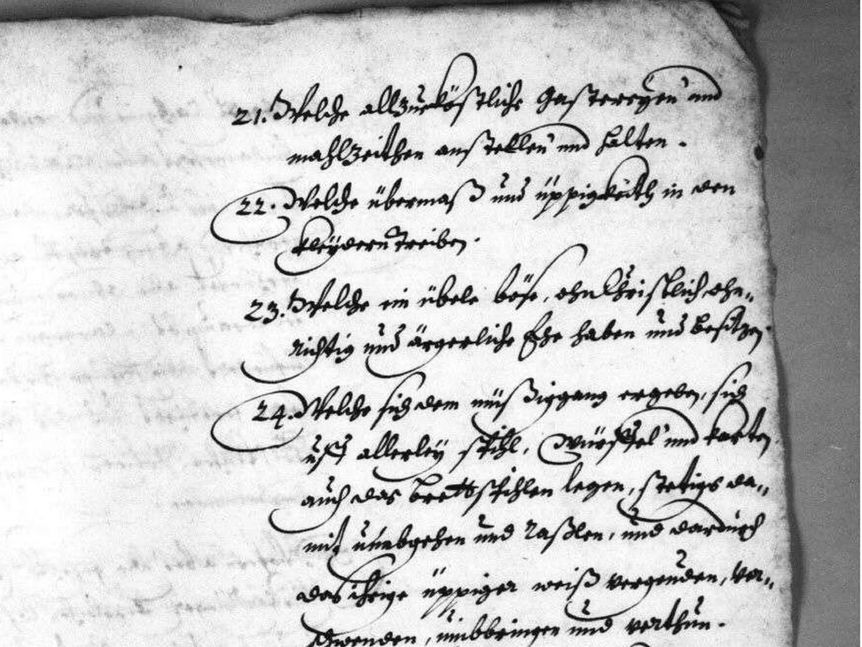 21. Welche allzuköstliche Gastereyen und
mahlzeithen anstellen und halten.
22. Welche übermaß und üppigkeith in den
kleydern treiben.
23. Welche ein übele böse, ohnChristlich, ohn-
richtig und ärgerliche Ehe haben und besitzen.
24. Welche sich dem müßiggang ergeben, sich
uff allerley spihl, würffel und karten
auch das brettspihlen legen, stetigs da-
mit umbgehen und raßlen, und dardurch
das ihrige üppiger weiß vergeuden, ver-
schwenden, umbbringen und verthun.